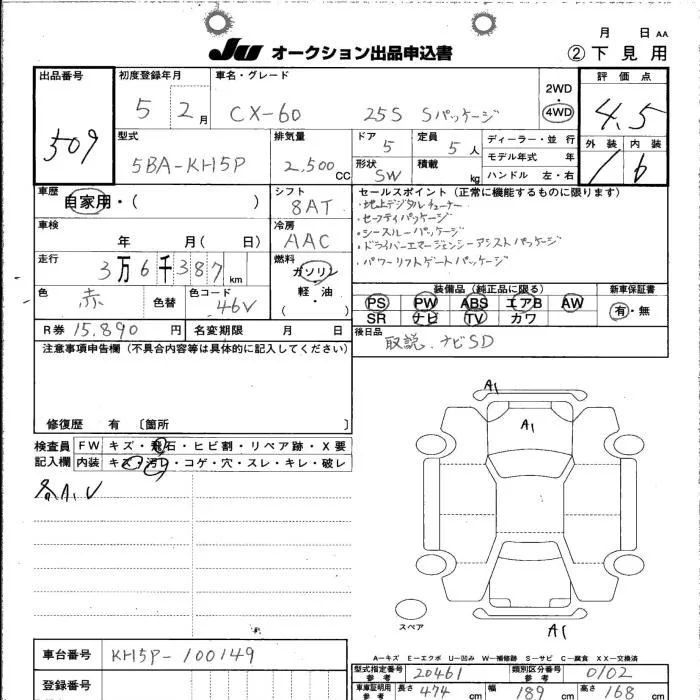 月 日 AA
JU オークション出品申込書 ②下見用
出品番号 初度登録年月 車名・グレード 2WD 評価点
509 5 2月 CX-60 25S Sパッケージ 4WD 4.5
型式 排気量 ドア 定員 ディーラー・並行 外装 内装
5BA-KH5P 2,500CC 5 5人 モデル年式 年
形状 SW 積載 kg ハンドル 左・右 b
車歴 シフト セールスポイント(正常に機能するものに限ります)
自家用・( ) 8AT ・地上デジタルチューナー
車検 冷房 ・セーフティパッケージ
年 月( 日) AAC ・シースルーパッケージ
・ドライバーエマージェンシーアシストパッケージ
走行 燃料 ・パワーリフトゲートパッケージ
3万6千387km ガソリン
軽・油
( )
色 赤 色替 色コード 46V
装備品(純正品に限る) 新車保証書
PS PW ABS エアB AW 有・無
SR ナビ TV カワ
R券 15,890円 名変期限 月 日 後日品
取説.ナビSD
注意事項申告欄(不具合内容等は具体的に記入してください)
修復歴 有 〔箇所 〕
検査員 FW キズ・飛石・ヒビ割・リペア跡・X要
記入欄 内装 キズ・汚レ・コゲ・穴・スレ・キレ・破レ
各A1,U
A1
A1
スペア
A1
A-キズ E-エクボ U-凹み W-補修跡 S-サビ C-腐食 XX-交換済
車台番号 KH5P-100149
型式指定番号 参考 20461 類別区分番号 参考 0102
登録番号
車庫証明用 参考 長さ 474cm 幅 189cm 高さ 168cm